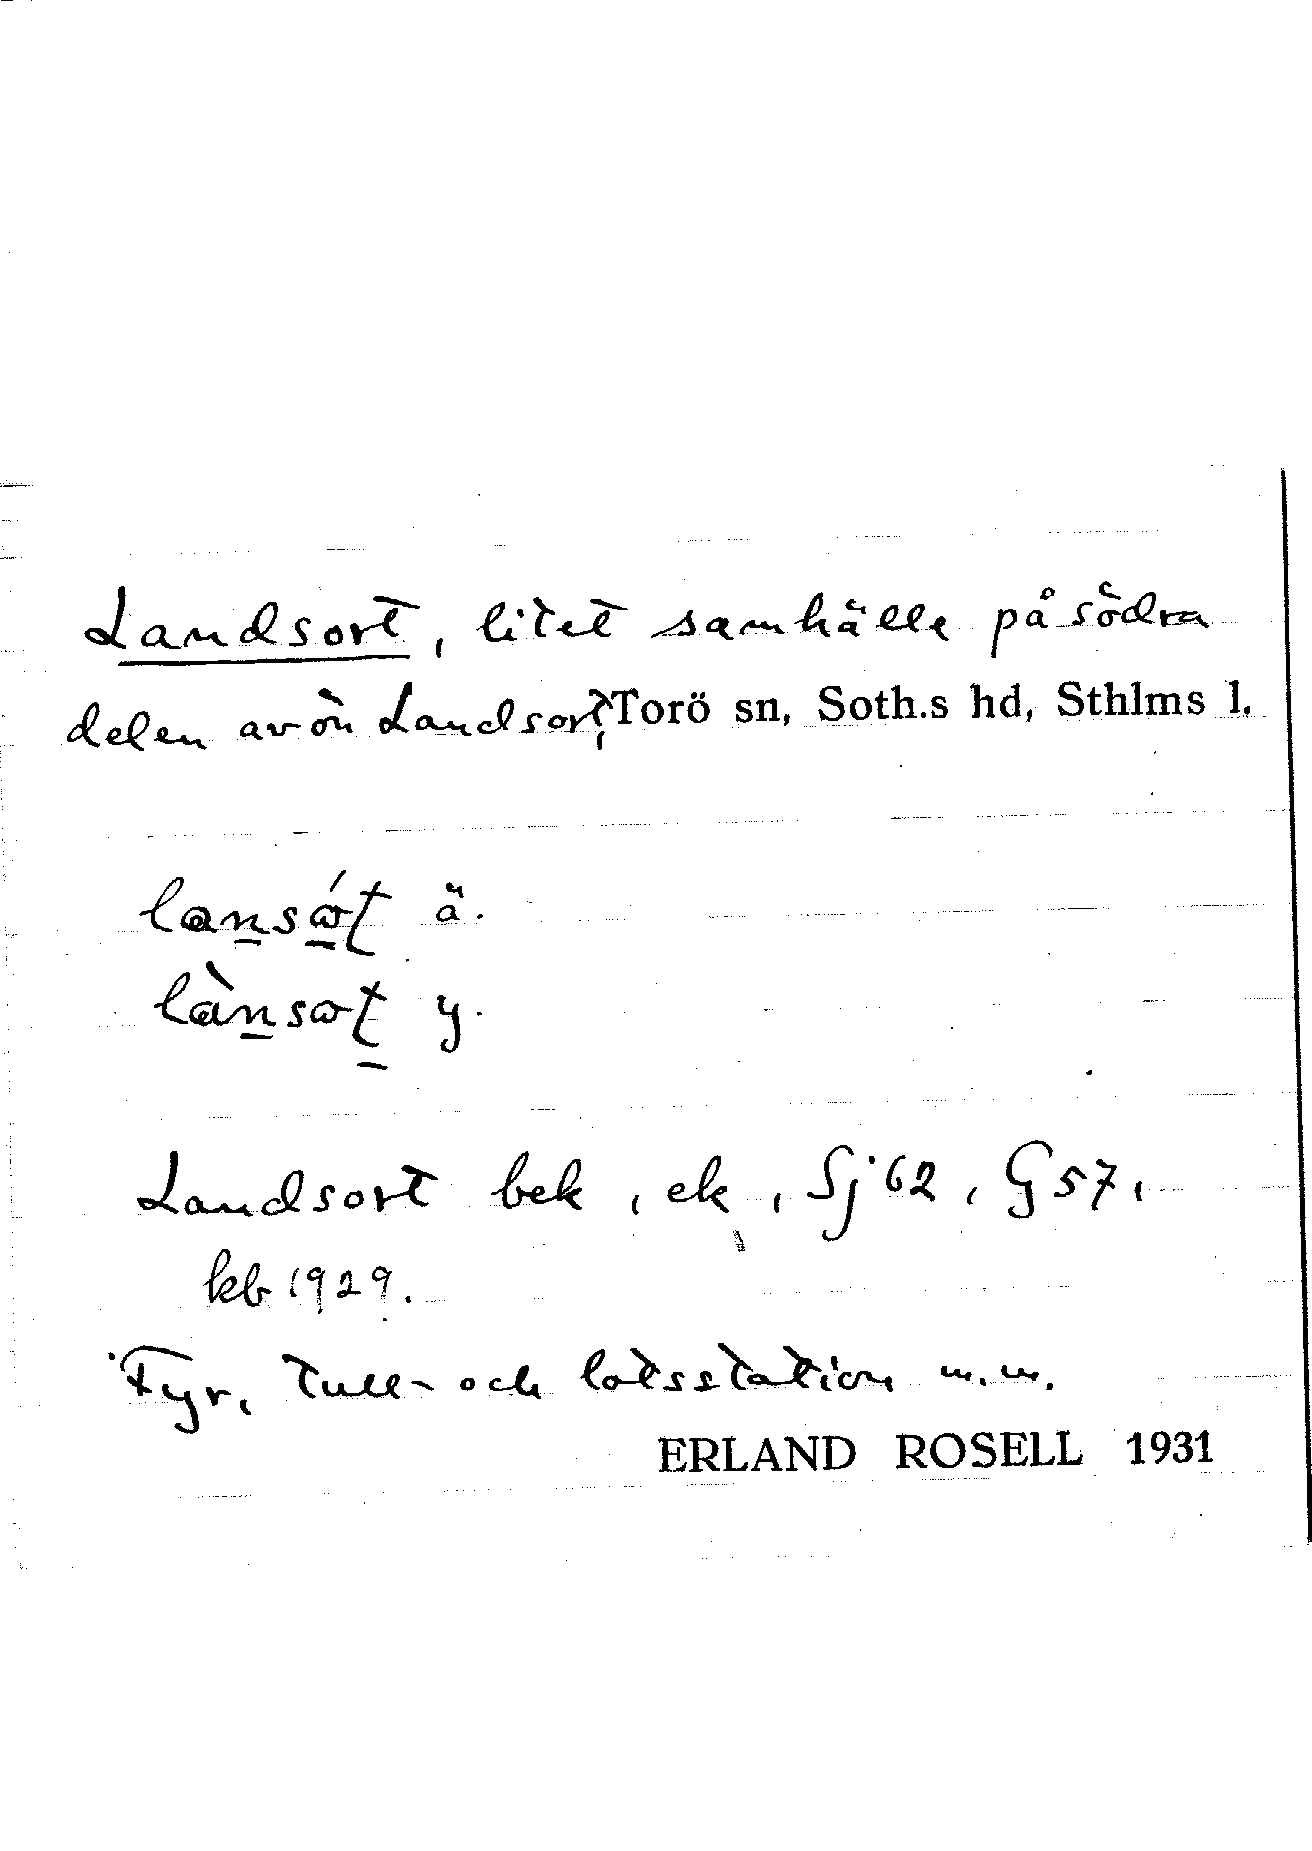 Landsort, litet samhälle på södra
delen av ön Landsort, Torö sn, Soth.s hd, Sthlms l.
ä.
y.
Landsort bek, ek, Sj 62, G 57,
kb 1929.
Fyr, tull- och lotsstation m.m.
ERLAND ROSELL 1931